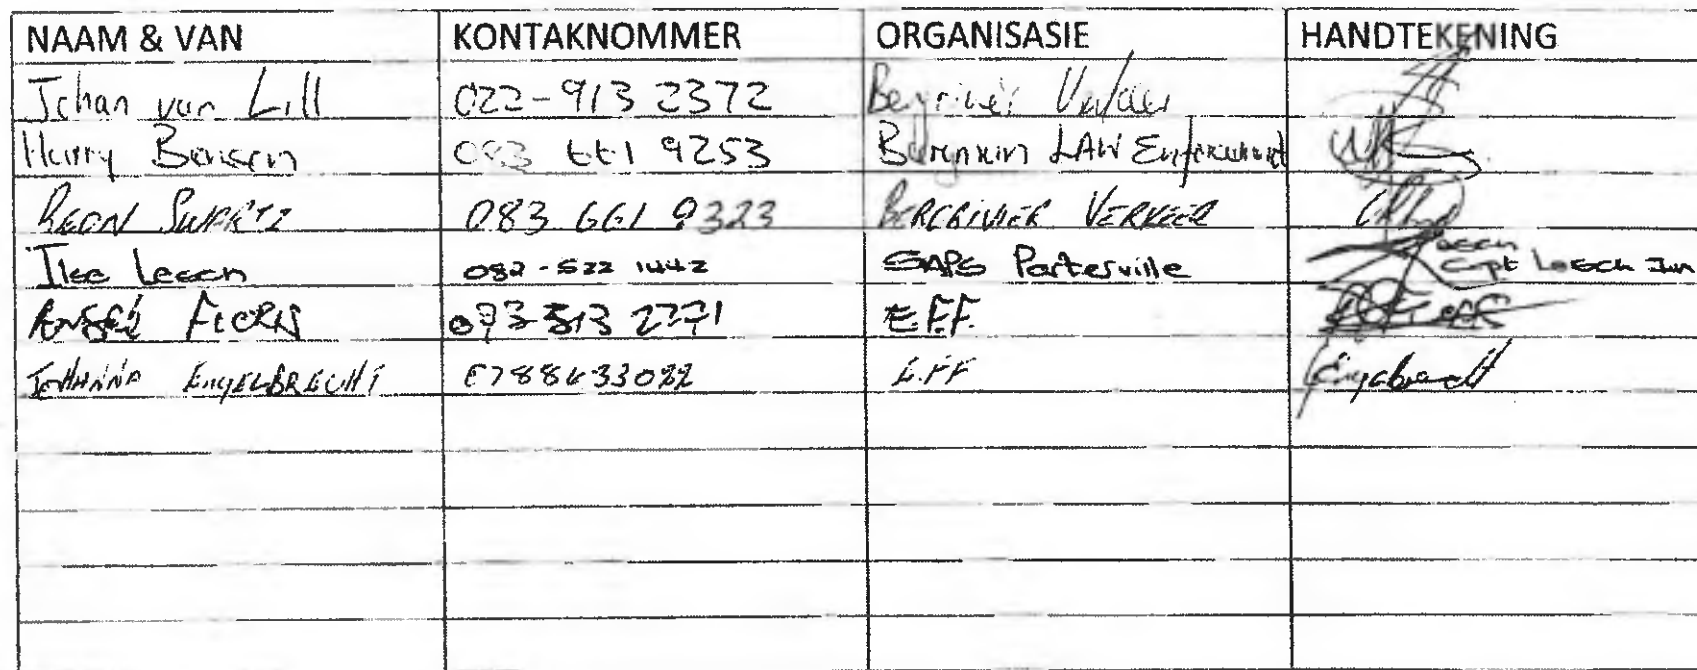 NAAM & VAN KONTAKNOMMER ORGANISASIE HANDTEKENING
Johan van Lill 022-913 2372 Bergrivier
Harry Bensen 083 661 9253 LAW Enforcement
REON SWARTZ 083 661 9323 BERGRIVIER VERKEER
Ilse Lesch 082-522 1442 SAPS Porterville Lesch
Capt Lesch
FLORIS E.F.F.
JOHANNA ENGELBRECHT 0788633022 E.FF Engelbrecht